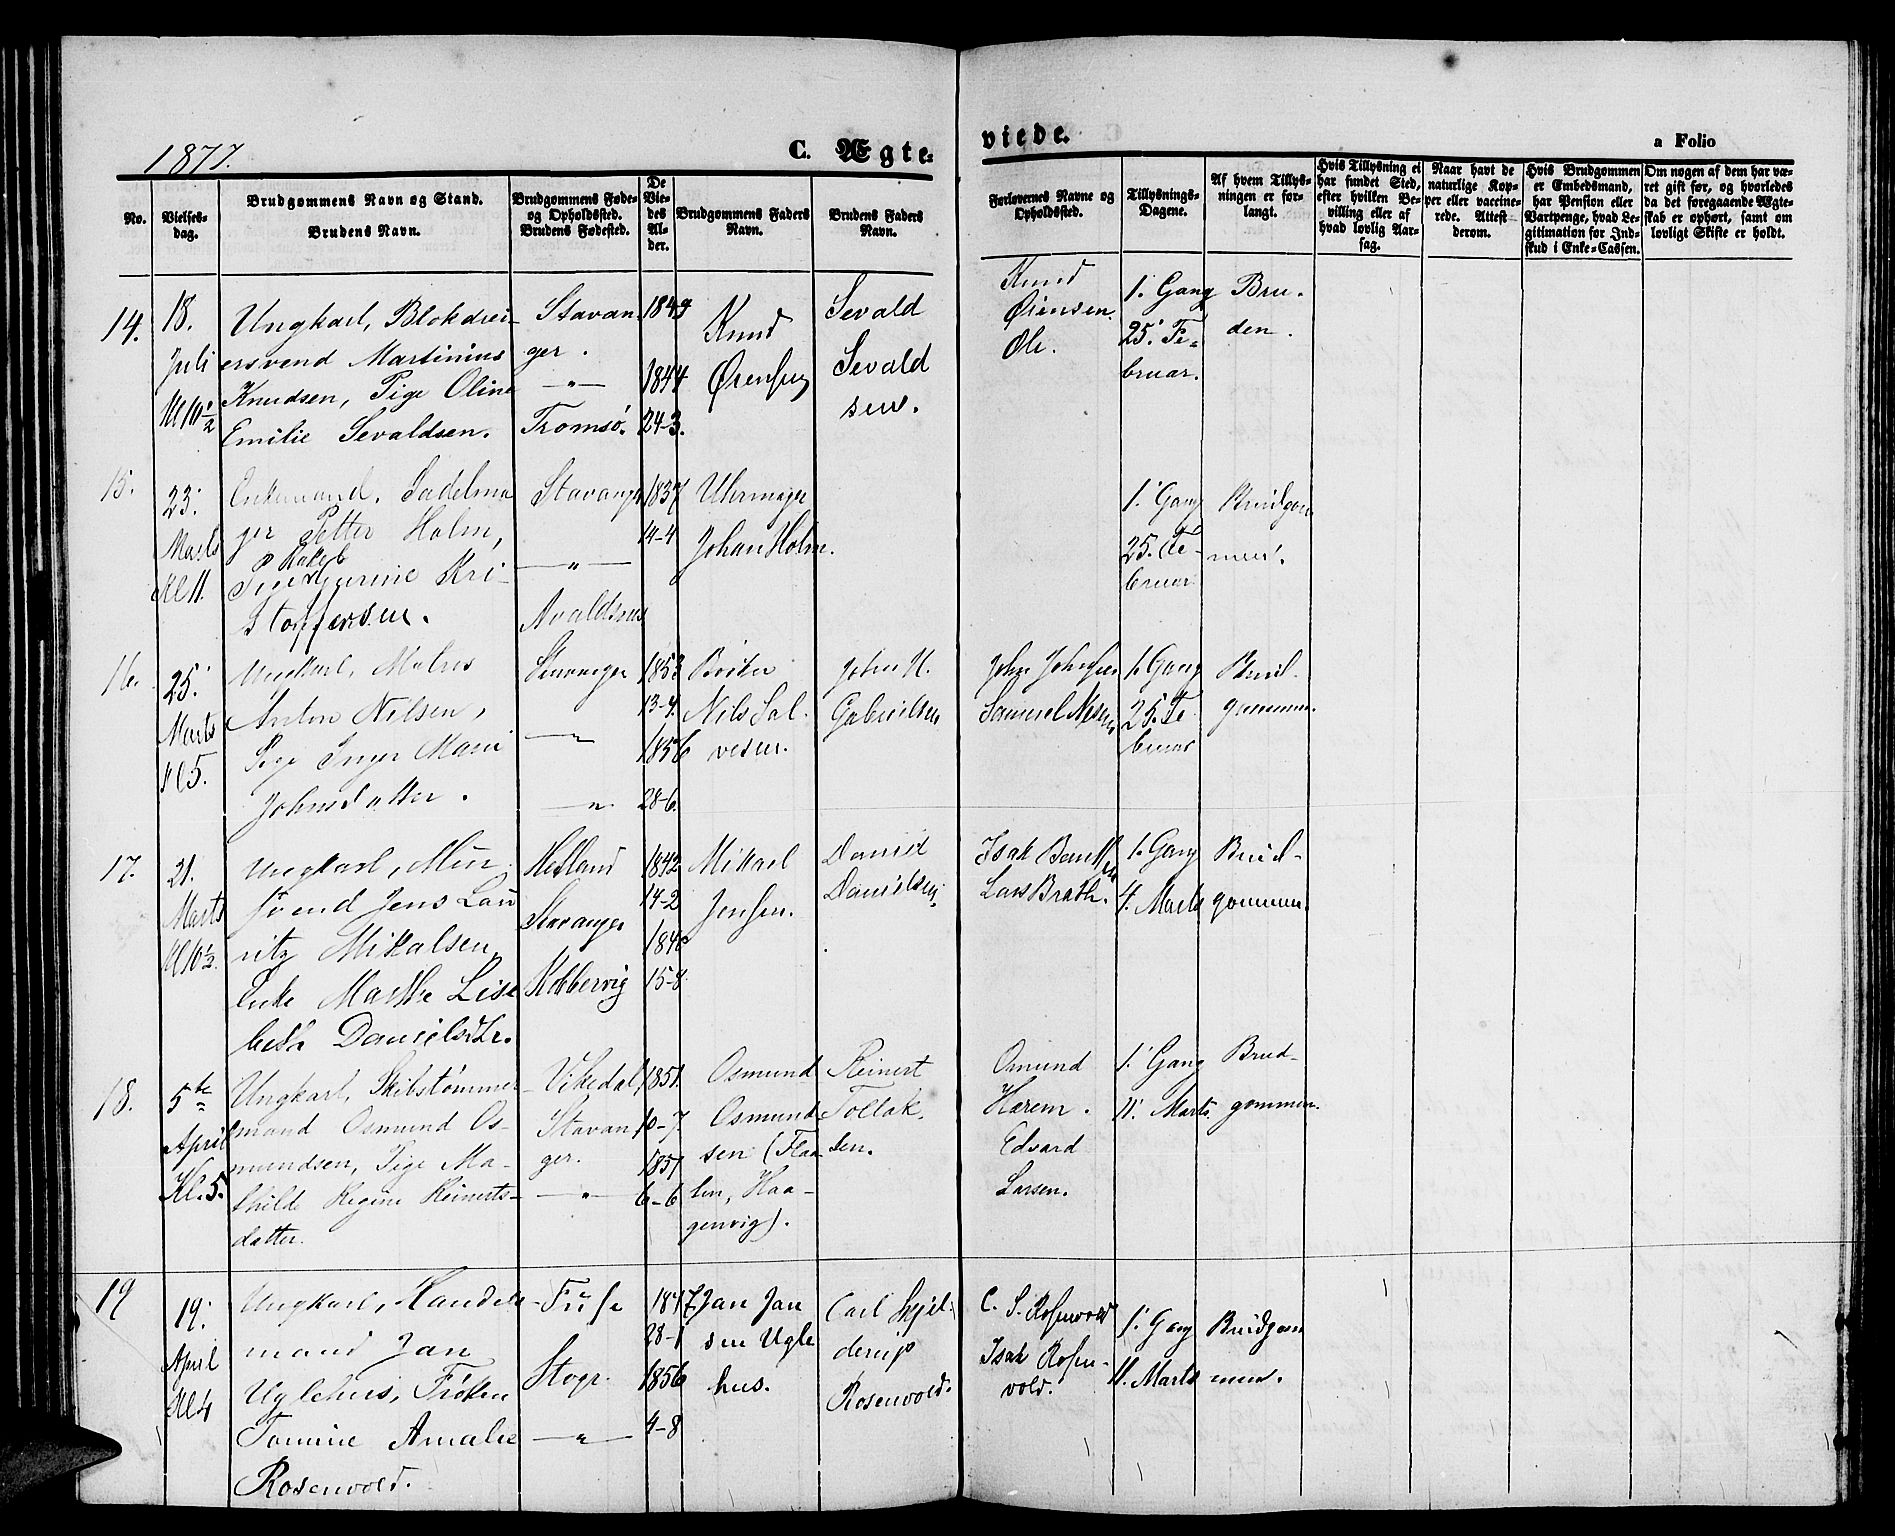 1877.
C. Ægte-
viede.
a Folio
No.
Vielses-
dag.
Brudgommens Navn og Stand.
Brudens Navn.
Brudgommens Føde-
og Opholdssted.
Brudens Fødested.
De
Vie-
des
Al-
der.
Brudgommens Faders
Navn.
Brudens Faders
Navn.
Forlovernes Navne og
Opholdssted.
Tillysnings-
Dagene.
Af hvem Tillys-
ningen er for-
langt.
Hvis Tillysning ei
har fundet Sted,
efter hvilken Be-
villing eller af
hvad lovlig Aar-
sag.
Naar havt de
naturlige Kop-
per eller vaccine-
rede. Attest
derom.
Hvis Brudgommen
er Embedsmand,
har Pension eller
Vartpenge, hvad Le-
gitimation for Ind-
skud i Enke-Cassen.
Om nogen af dem har væ-
ret gift før, og hvorledes
da det foregaaende Ægte-
skab er ophørt, samt om
lovligt Skifte er holdt.
14.
18.
Juli
Kl 10½
Ungkarl, Blokdrei-
ersvend Martinius
Knudsen, Pige Oline
Emilie Sevaldsen.
Stavan-
ger.
—"—
Tromsø.
1849
1844
24-3.
Knud
Ørensen
Sevald
Sevald
sen.
Knud
Ørensen.
Ole.
1. Gang
25. Fe-
bruar.
Bru-
den.
15.
23.
Marts
Kl 11.
Enkemand, Sadelma
ger Petter Holm,
Pige Gurine Kri-
stoffersen.
Stavanger
—"—
Avaldsnes
1837
14-4
Uhrmager
Johan Holm.
1. Gang
25. Fe-
bruar
Brudgom
men.
16.
25.
Marts
Kl 5.
Ungkarl, Matros
Anton Nilsen,
Pige Inger Marie
Johnsdatter.
Stavanger
—"—
—"—
1853
13-4.
1856
28-6.
Nils Sal-
vesen.
John H.
Gabrielsen
John Johnsen
Samuel
1. Gang
25. Fe
bruar
Brud-
gommen.
17.
21.
Marts
Kl 10½
Ungkarl, Mur
svend Jens Lau
ritz Mikalsen,
Enke Marthe Lise
beth Danielsdtr.
Hetland
Stavanger
Kobbervig
1842
14-2
1840
15-8
Mikael
Jensen.
Daniel
Danielsen.
Isak
Lars Brath.
1. Gang
4. Marts
Brud-
gommen.
18.
5te
April
Kl. 5.
Ungkarl, Skibstømmer-
mand Osmund Os-
mundsen, Pige Ma-
thilde Regine Reinerts-
datter.
Vikedal,
Stavan
ger.
—"—
1851.
10-7
1851
6-6
Osmund
Osmund
sen (Flaa-
ten, Haa-
genvig).
Reinert
Tollak-
sen.
Osmund
Harem.
Edvard
Larsen.
1. Gang
11. Marts.
Brud-
gommen.
19
19.
April
Kl 4
Ungkarl, Handels
mand Jan
Uglehus, Frøken
Tomine Amalie
Rosenvold.
Fuse
Stvgr.
—"—
1847
28-1
1856
4-8
Jan Jan
sen Ugle
hus.
Carl Skjel-
derup
Rosenvold.
C. S. Rosenvold
Isak Rosen-
vold.
1. Gang
11. Marts
Brudgom
men.